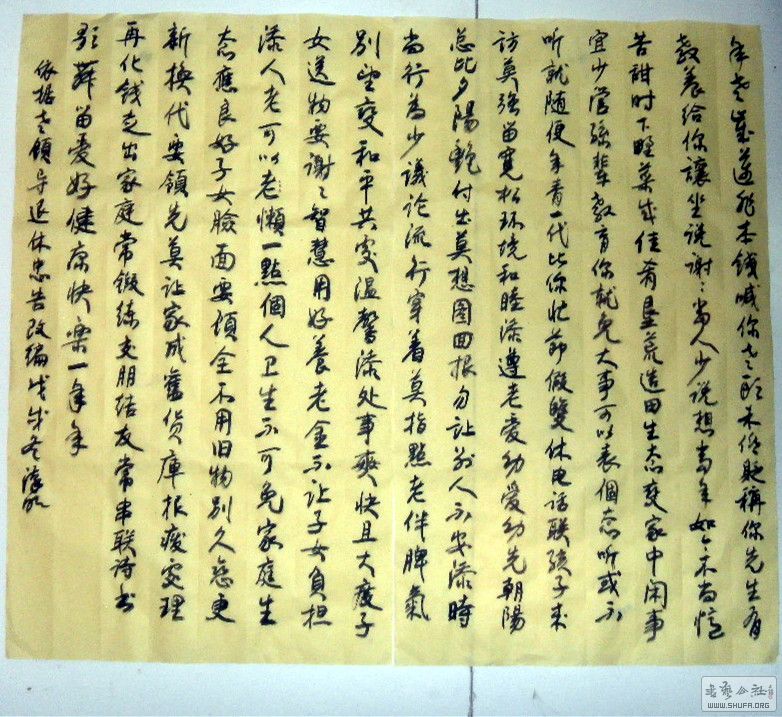 年老岁适非本钱喊你老头不低贬称你先生有
教养给你讓坐说谢谢当人少说想当年如今不当忆
苦甜时下野菜成佳肴垦荒造田生态变家中闲事
宜少管孙辈教育你就免大事可以表個态听或不
听就随便年青一代比你忙节假雙休电话联孩子来
访莫强留寬松环境和睦添遵老爱幼爱幼先朝陽
总比夕陽艳付出莫想图回报勿让别人不安添時
尚行为少议论流行穿着莫指點老伴脾氣
别望变和平共处温馨添处事爽快且大度子
女送物要谢谢智慧用好養老金不让子女負担
添人老可以老懒一點個人卫生不可免家庭生
态應良好子女臉面要顾全不用旧物别久恋更
新换代要领先莫让家成舊货庫报废处理
再化钱走出家庭常锻练交朋结友常串联诗书
歌舞留爱好健康快乐一年年
依据老领导退休忠告改编戊戌冬
書艺公社
WWW.SHUFA.ORG